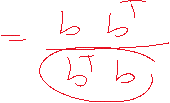 = b b^T
b^T b